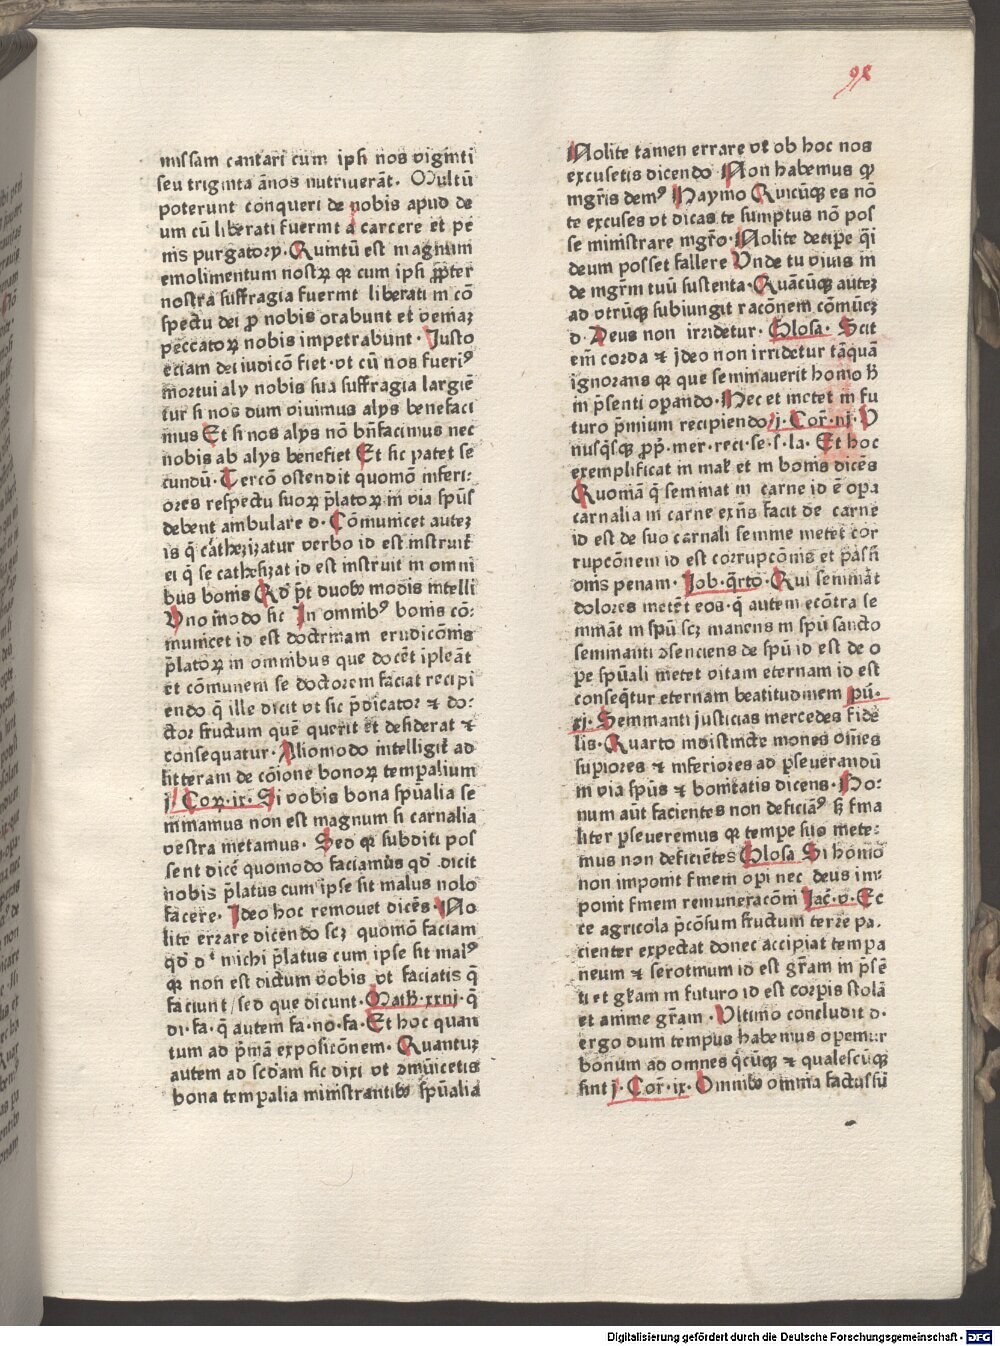 98
missam cantari cum ipsi nos viginti
seu triginta ānos nutriverāt. Multū
poterunt conqueri de nobis apud de
um cū liberati fuerint a carcere et pe
nis purgatorÿ. Quintū est magnum
emolimentum nostrꝝ qꝛ cum ipsi ꝓpter
nostra suffragia fuerint liberati in cō
spectu dei ꝓ nobis orabunt et veniaꝫ
peccatoꝝ nobis impetrabunt. Justo
eciam dei iudicō fiet. vt cū nos fueriꝰ
mortui alÿ nobis sua suffragia largiē
tur si nos dum viuimus alÿs benefaci
mus Et si nos alÿs nō bn̄facimus nec
nobis ab alÿs benefiet Et sic patet se
cundū. Tercō ostendit quomō inferi:
ores respectu suoꝝ p̄latoꝝ in via spūs
debent ambulare d. Cōmunicet auteꝫ
is q̄ cathezizatur verbo id est instruit̄
ei q̄ se cathesizat id est instruit in omni
bus bonis Qđ pt̄ duobꝰ modis intelli
Uno modo sic In omnibꝰ bonis cō:
municet id est doctrinam erudicōnis
p̄latoꝝ in omnibus que docēt ip̄leāt
et cōmunem se doctorem faciat recipi
endo q̄ ille dicit vt sic p̄dicator ⁊ do:
ctor fructum quē querit et desiderat ⁊
consequatur. Aliomodo intelligit̄ ad
litteram de cōione bonoꝝ temꝑalium
j. Coꝝ. ix. Si vobis bona spūalia se
minamus non est magnum si carnalia
vestra metamus. Sed qꝛ subditi pos
sent dicē quomodo faciamus qđ dicit
nobis p̄latus cum ipse sit malus nolo
facere. Ideo hoc remouet dicēs. No
lite errare dicendo scꝫ quomō faciam
qđ dt michi p̄latus cum ipse sit malꝰ
qꝛ non est dictum vobis vt faciatis q̄
faciunt / sed que dicunt. Math. xxiij. q̄
di. fa. q̄ autem fa. no. fa. Et hoc quan
tum ad p̄mā expositōnem. Quantuꝫ
autem ad scđam sic dixi vt ↄmūicetis
bona temꝑalia ministrantibꝰ spūalia
Nolite tamen errare vt ob hoc nos
excusetis dicendo Non habemus qđ
mgr̄is demꝰ Haymo Quicūqꝫ es nō
te excuses vt dicas te sumptus nō pos
se ministrare mgr̄o. Nolite decipe q̄i
deum posset fallere Unde tu viuis in
de mgr̄m tuū sustenta. Quācūqꝫ auteꝫ
ad vtrūqꝫ subiungit racōnem cōmūeꝫ
d. Deus non irridetur. Glosa. Scit
em̄ corda ⁊ jdeo non irridetur tāquā
ignorans qꝛ que seminauerit homo ħ
in p̄senti oꝑando. Hec et metet in fu
turo p̄mium recipiendo / j. Cor̄. iij. U
nusqͥsqꝫ prop̄. mer. reci. se. s. la. Et hoc
exemplificat in mal̄ et in bonis dicēs
Quoniā q̄ seminat in carne id ē oꝑa
carnalia in carne exn̄s facit de carne
id est de suo carnali semine metet cor
rupcōnem id est corrupcōnis et passi
onis penam. Job. q̄rto. Qui seminat
dolores metēt eos. q̄ autem ecōtra se
minat in spū scꝫ manens in spū sancto
seminanti ↄsenciens de spū id est de o
pe spūali metet vitam eternam id est
conseqt̄ur eternam beatitudinem pū.
xj. Seminanti justicias mercedes fide
lis. Quarto indistincte mones oīnes
suꝑiores ⁊ inferiores ad ꝑseuerandū
in via spūs ⁊ bonitatis dicens. Bo:
num aūt facientes non deficiāꝰ sꝫ fina
liter ꝑseueremus qꝛ tempe suo mete:
mus non deficiētes Glosa Si homo
non imponit finem opi nec deus im:
ponit finem remuneracōni Jac̄. v. Ec
ce agricola p̄cōsum fructum terre pa.
cienter expectat donec accipiat tempa
neum ⁊ serotinum id est gr̄am in p̄sē
ti et gl̄am in futuro id est corꝑis stolā
et anime gr̄am. Ultimo concludit d.
ergo dum tempus habemus operemur
bonum ad omnes q̄cūqꝫ ⁊ qualescūqꝫ
sint j. Cor̄. ix. Omnibꝰ omnia factus sū
Digitalisierung gefördert durch die Deutsche Forschungsgemeinschaft - DFG